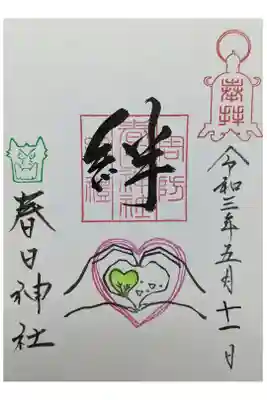 奉拝
令和三年五月十一日
絆
春日神社